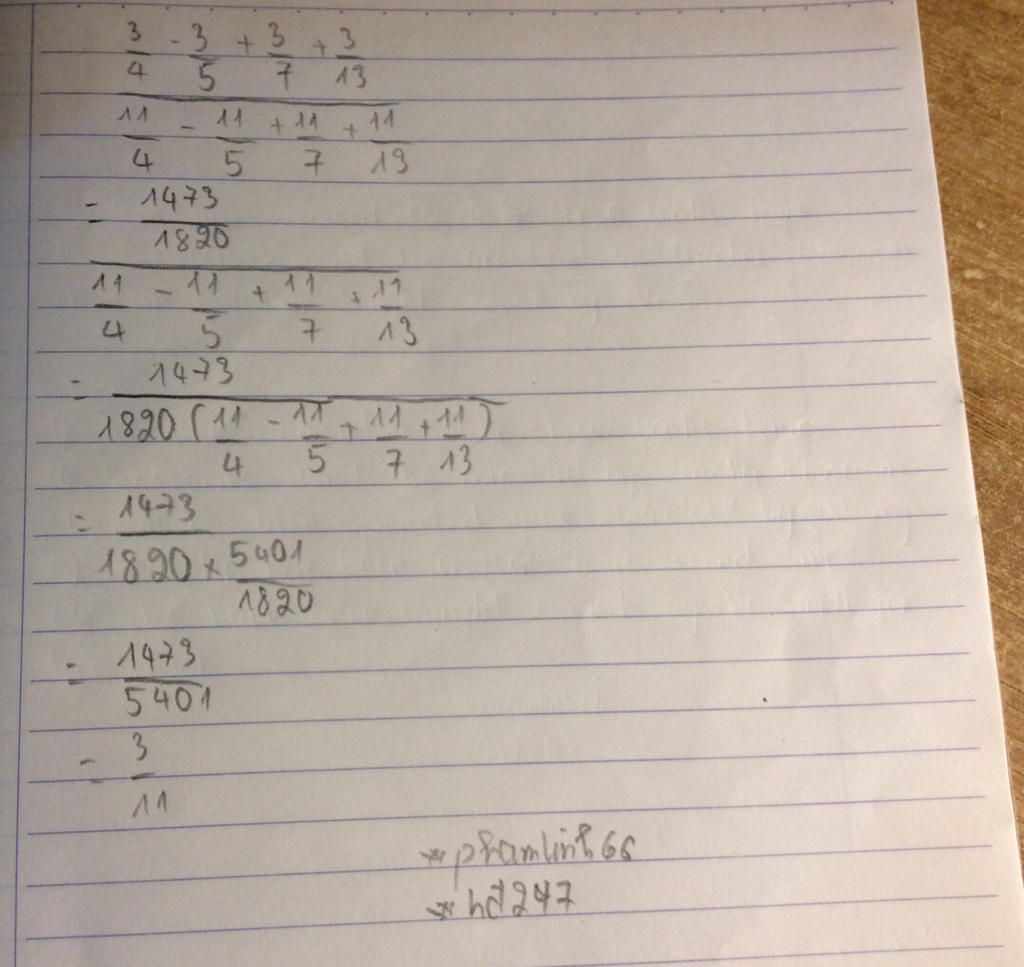 3 - 3 + 3 + 3
4 5 7 13
11 - 11 + 11 + 11
4 5 7 13
= 1473
1820
11 - 11 + 11 + 11
4 5 7 13
= 1473
1820 ( 11 - 11 + 11 + 11 )
4 5 7 13
= 1473
1820 × 5401
1820
= 1473
5401
= 3
11
* phamlinh66
* hd247